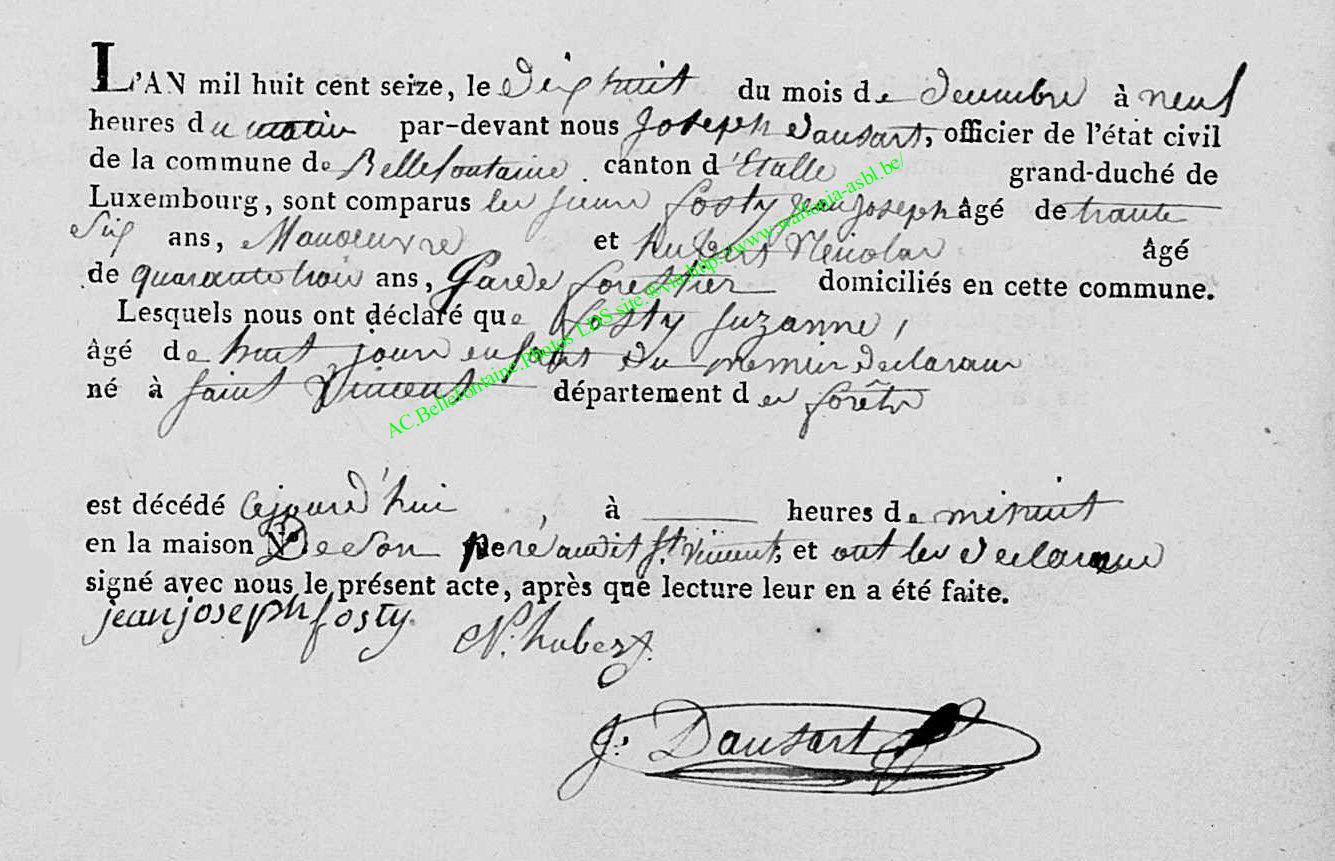 L'AN mil huit cent seize, le dix huit du mois de decembre à neuf
heures du matin par-devant nous Joseph Dausart, officier de l'état civil
de la commune de Bellefontaine canton d'Etalle grand-duché de
Luxembourg, sont comparus les sieurs fosty jean joseph âgé de trante
Six ans, Manoeuvre et hubert Nicolas âgé
de quarante trois ans, Garde forestier domiciliés en cette commune.
Lesquels nous ont déclaré que fosty Suzanne,
âgé de huit jours enfant du premier declarant
né à Saint Vincent département des forêts
est décédé cejourd'hui, à heures de minuit
en la maison de son pere audit St. Vincent, et ont les declarans
signé avec nous le présent acte, après que lecture leur en a été faite.
jean joseph fosty. N. hubert.
J. Dausart
AC.Bellefontaine.Photos LDS site via http://www.wallonia-asbl.be/